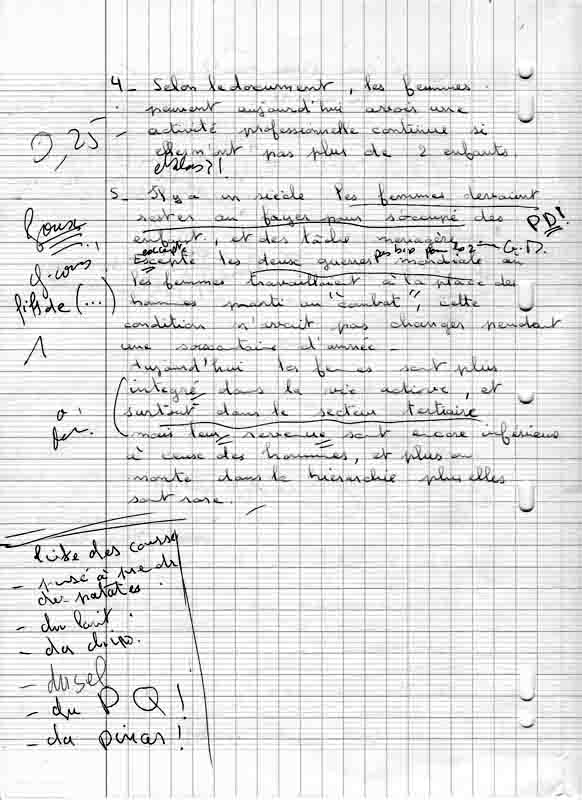 4_ Selon le document, les femmes
peuvent aujourd'hui avoir une
0,25
activité professionnelle continue si
elles n'ont pas plus de 2 enfants.
5_ Il y a un siècle les femmes devraient
rester au foyer pour s'occupé des
PD!
enfant, et des tâche menagère
excepté pas bip pour la 2 G.D.
Excepté les deux guerres mondiale ou
les femmes travaillaient à la place des
fils de (...)
hommes parti au "combat", cette
condition n'avait pas changer pendant
1
une soixantaine d'année_
Aujourd'hui les femmes sont plus
integré dans la vie active, et
surtout dans le secteur tertiaire
mais leur revenue sont encore inférieus
à cause des hommes, et plus on
monte dans la hierarchie plus elles
sont rare.
liste des course
- pensé à prendre
des patates.
- du lait.
- du sel
- du PQ!
- du pinar!